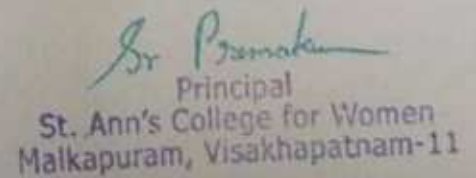 Sr Premalatha
Principal
St. Ann's College for Women
Malkapuram, Visakhapatnam-11